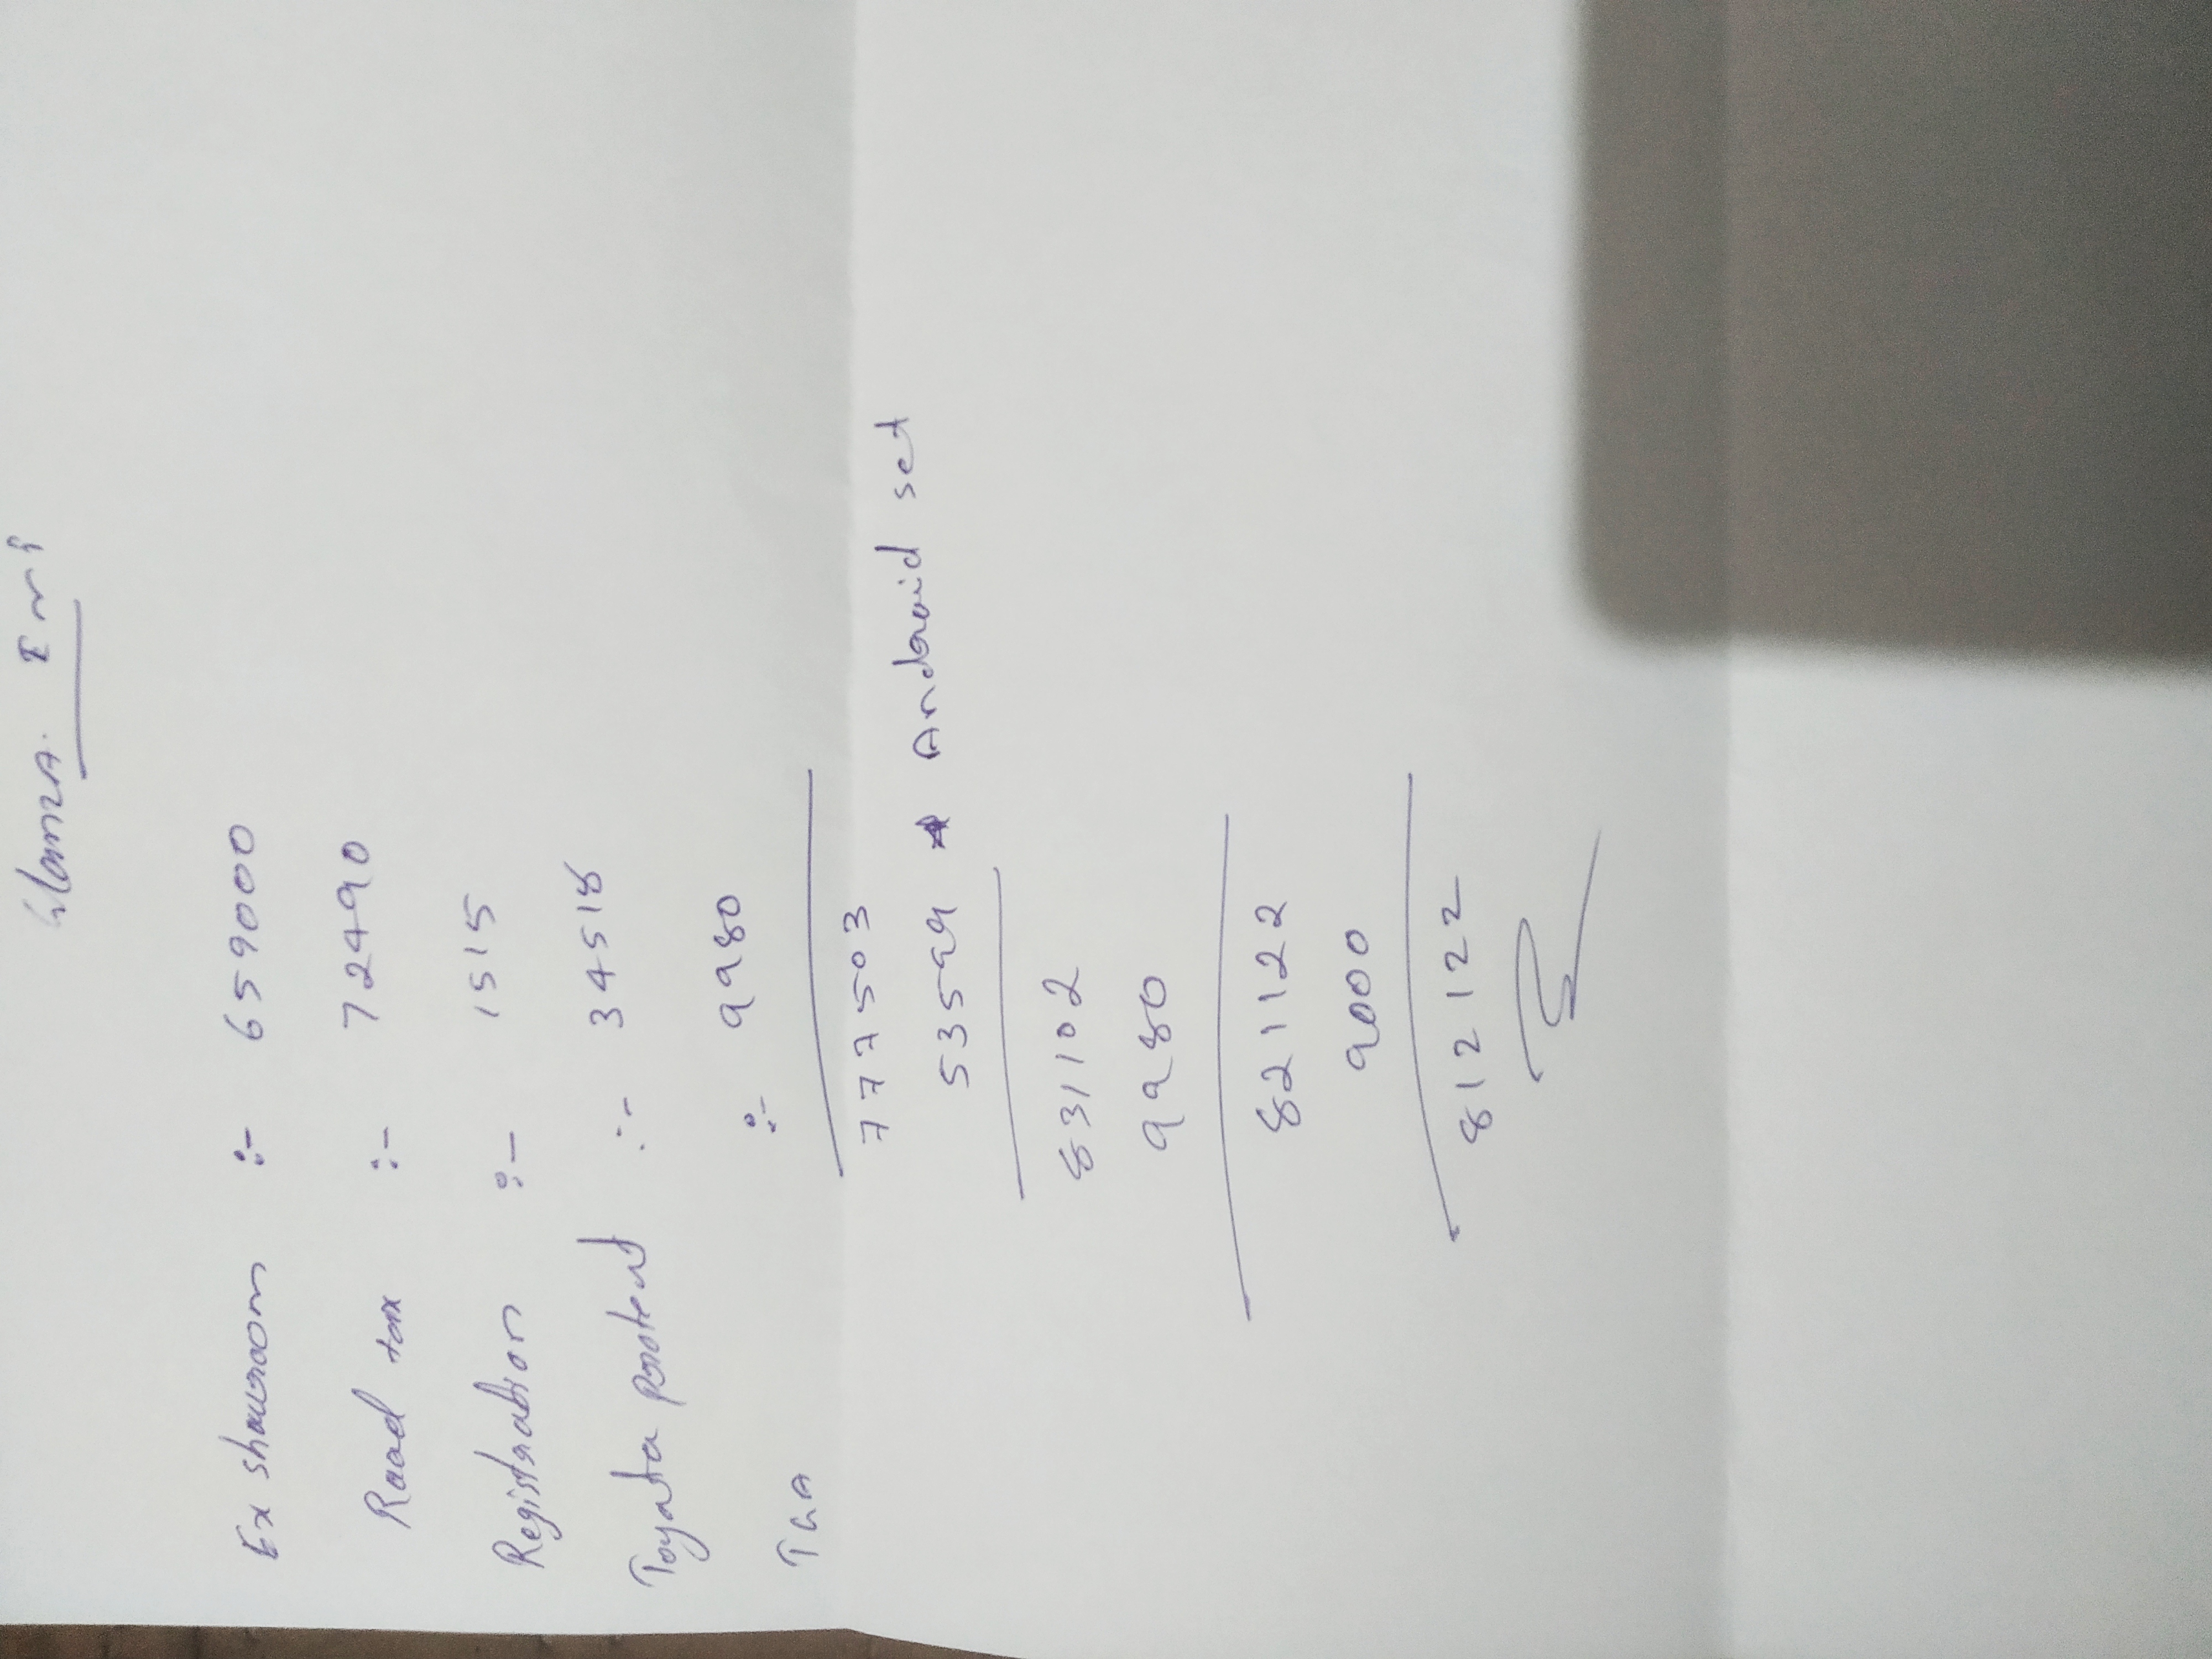 Glanza Emi
Ex showroom :- 659000
Road tax :- 72490
Registration :- 1515
Toyata protect :- 34518
TGA :- 9980
777503
53599 * Android set
831102
9980
821122
9000
812122